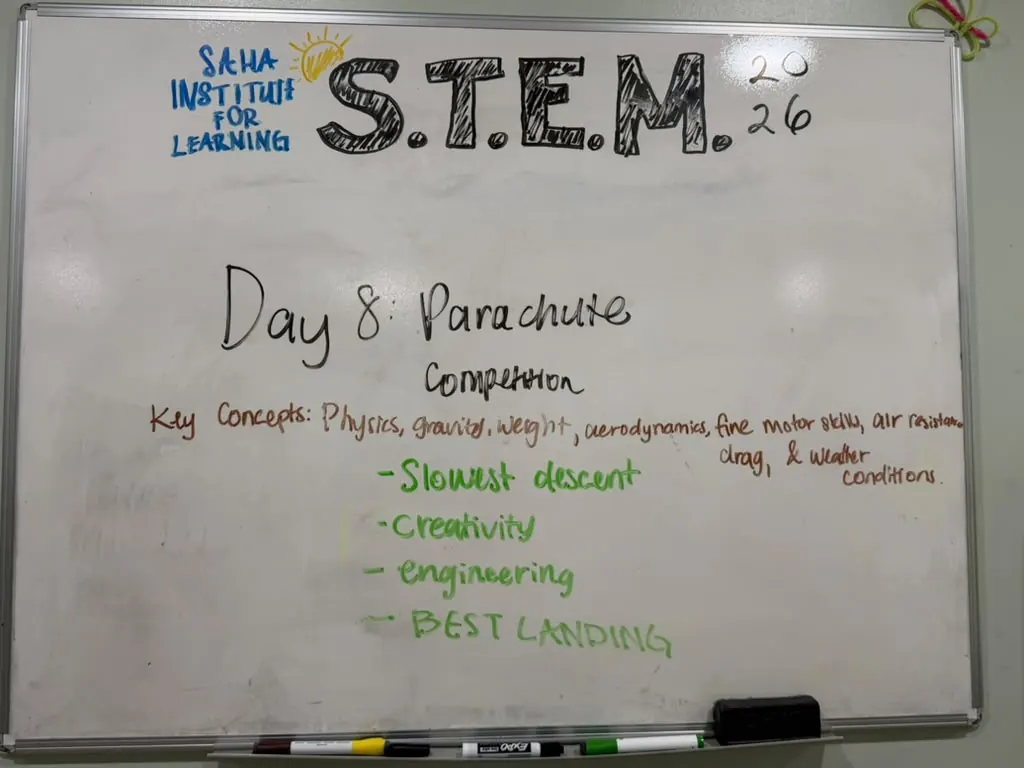 SAHA
INSTITUTE
FOR
LEARNING
S.T.E.M.
20
26
Day 8: Parachute
Competition
Key Concepts: Physics, gravity, weight, aerodynamics, fine motor skills, air resistance
drag, & weather
conditions.
- Slowest descent
- Creativity
- engineering
- BEST LANDING
EXPO